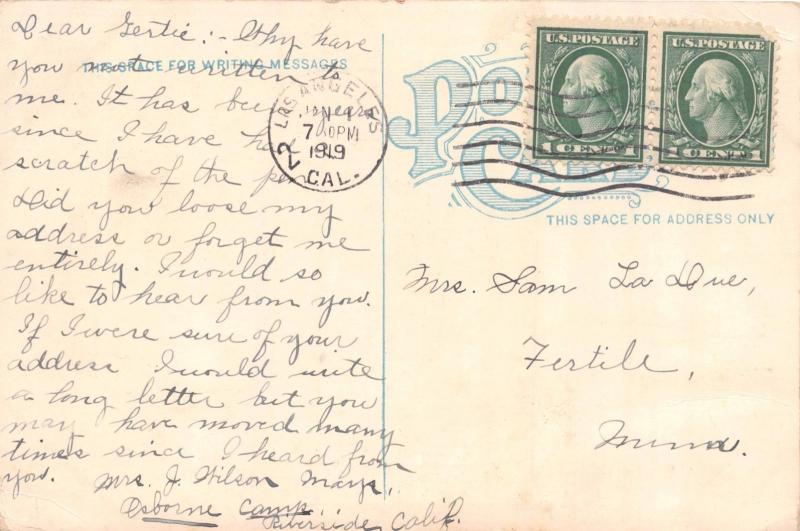 Dear Gertie:- Why have
you not written to
THIS SPACE FOR WRITING MESSAGES
me. It has been years
since I have had
scratch of the pen
Did you loose my
address or forget me
entirely. I would so
like to hear from you.
If I were sure of your
address I would write
a long letter but you
may have moved many
times since I heard from
you. Mrs. J. Wilson Mays,
Osborne Camp
Riverside, Calif.
LOS ANGELES
JAN 1
7 30PM
1919
CAL.
2
U.S. POSTAGE
1 CENT
U.S. POSTAGE
1 CENT
POST
CARD
THIS SPACE FOR ADDRESS ONLY
Mrs. Sam La Due,
Fertile,
Minn.